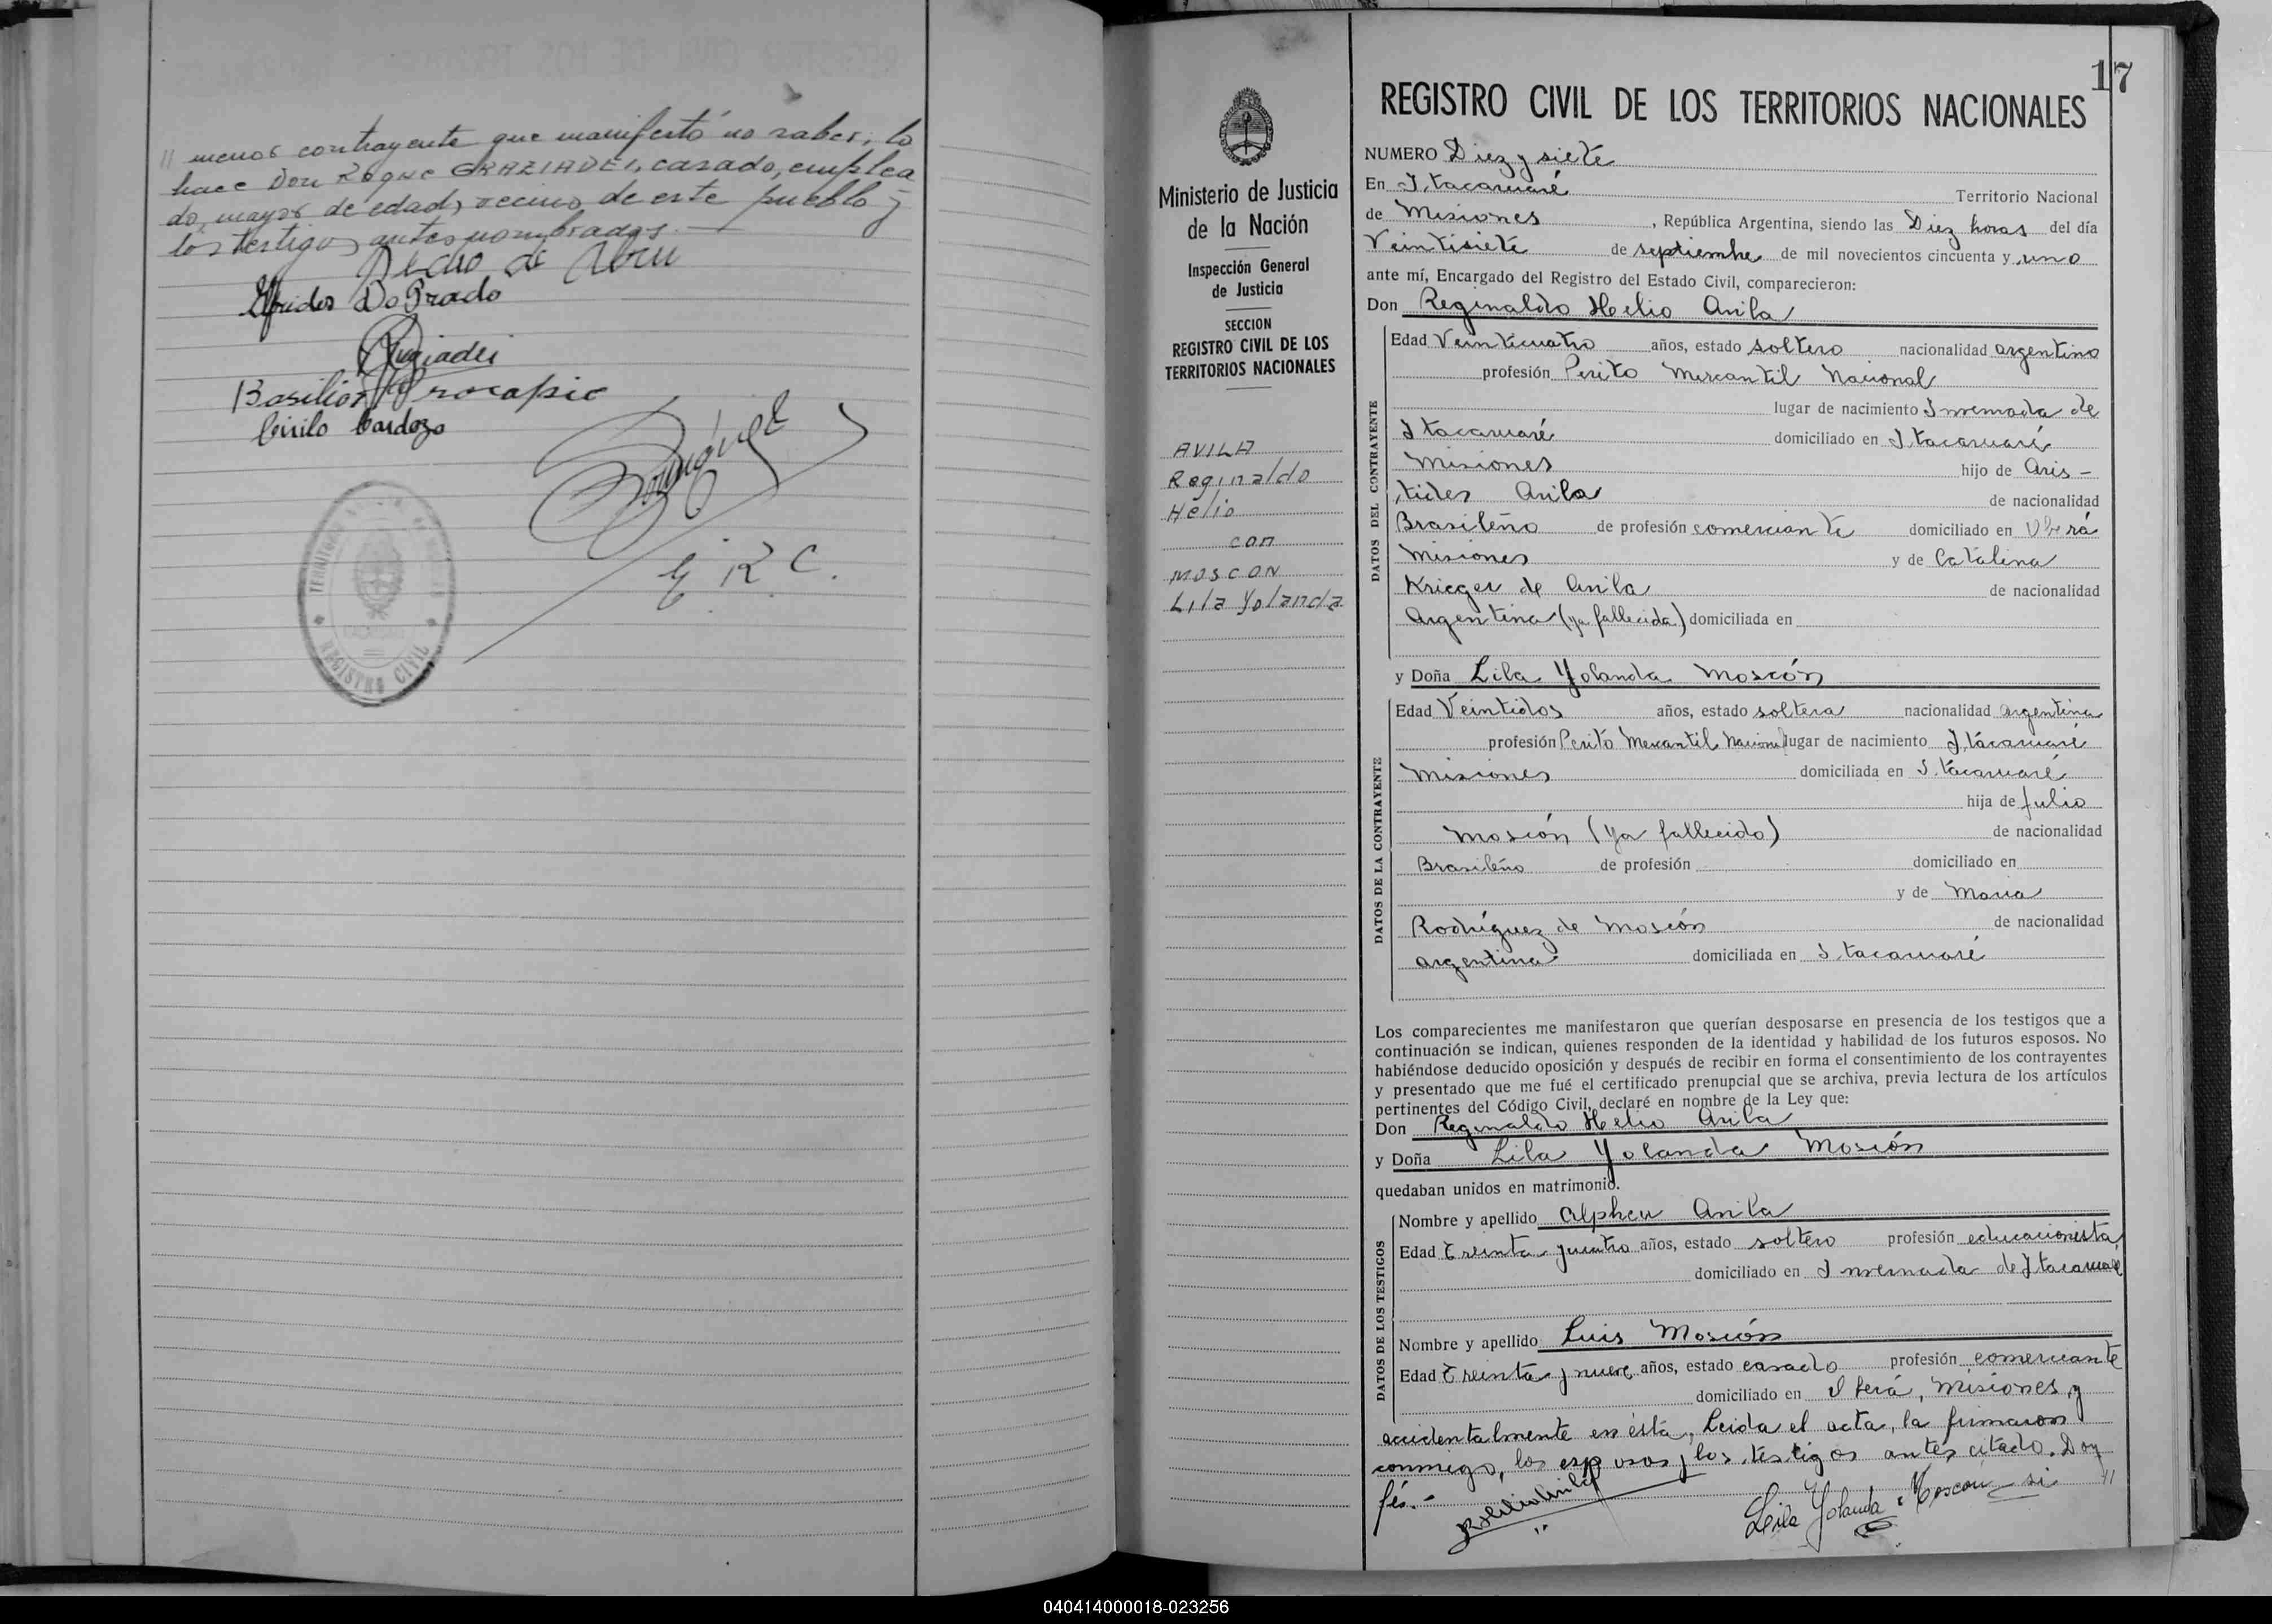 // menos contrayente que manifestó no saber, lo
hace Don Roque GRAZIADEI, casado, emplea
do, mayor de edad, vecino de este pueblo y
los testigos antes nombrados.
Pedro de Abreu
Do Prado
Graziadei
Basilio Procopio
Cirilo Cardozo
E. R. C.
REGISTRO CIVIL
17
Ministerio de Justicia
de la Nación
Inspección General
de Justicia
SECCION
REGISTRO CIVIL DE LOS
TERRITORIOS NACIONALES
AVILA
Reginaldo
Helio
con
MOSCON
Lila Yolanda
REGISTRO CIVIL DE LOS TERRITORIOS NACIONALES
NUMERO Diez y siete
En Itacaruaré Territorio Nacional
de Misiones, República Argentina, siendo las Diez horas del día
Veintisiete de septiembre de mil novecientos cincuenta y uno
ante mí, Encargado del Registro del Estado Civil, comparecieron:
Don Reginaldo Helio Avila
DATOS DEL CONTRAYENTE
Edad Veinticuatro años, estado soltero nacionalidad argentino
profesión Perito Mercantil Nacional
lugar de nacimiento Invernada de
Itacaruaré domiciliado en Itacaruaré
Misiones hijo de Aris-
tides Avila de nacionalidad
Brasileño de profesión comerciante domiciliado en Oberá
Misiones y de Catalina
Krieger de Avila de nacionalidad
Argentina (ya fallecida) domiciliada en
y Doña Lila Yolanda Moscón
DATOS DE LA CONTRAYENTE
Edad Veintidos años, estado soltera nacionalidad argentina
profesión Perito Mercantil Nacional lugar de nacimiento Itacaruaré
Misiones domiciliada en Itacaruaré
hija de Julio
Moscón (ya fallecido) de nacionalidad
Brasileño de profesión domiciliado en
y de Maria
Rodríguez de Moscón de nacionalidad
argentina domiciliada en Itacaruaré
Los comparecientes me manifestaron que querían desposarse en presencia de los testigos que a
continuación se indican, quienes responden de la identidad y habilidad de los futuros esposos. No
habiéndose deducido oposición y después de recibir en forma el consentimiento de los contrayentes
y presentado que me fué el certificado prenupcial que se archiva, previa lectura de los artículos
pertinentes del Código Civil, declaré en nombre de la Ley que:
Don Reginaldo Helio Avila
y Doña Lila Yolanda Moscón
quedaban unidos en matrimonio.
DATOS DE LOS TESTIGOS
Nombre y apellido Alpheu Avila
Edad Treinta y cuatro años, estado soltero profesión educacionista
domiciliado en Invernada de Itacaruaré
Nombre y apellido Luis Moscón
Edad Treinta y nueve años, estado casado profesión comerciante
domiciliado en Oberá, Misiones y
accidentalmente en ésta, Leida el acta, la firmaron
conmigo, los esposos y los testigos antes citado. Doy
fé.-
RHelioAvila
Lila Yolanda Moscón //
040414000018-023256